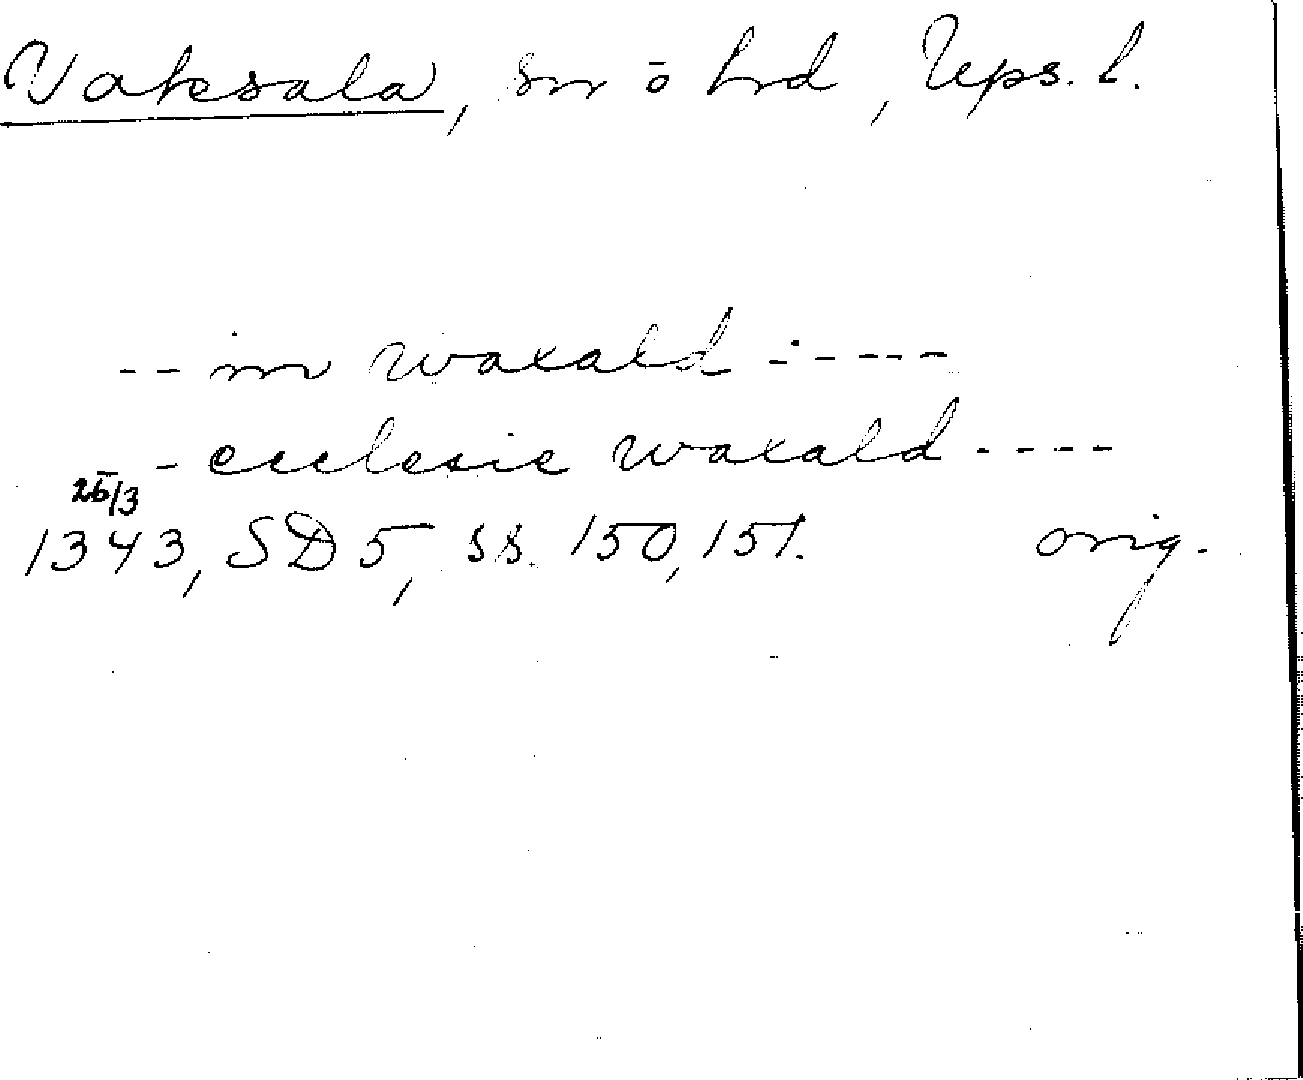 Vaksala, sn o hd, Ups. l.
-- in waxald -----
- ecclesie waxald ----
25/3
1343, SD 5, ss. 150, 151. orig.